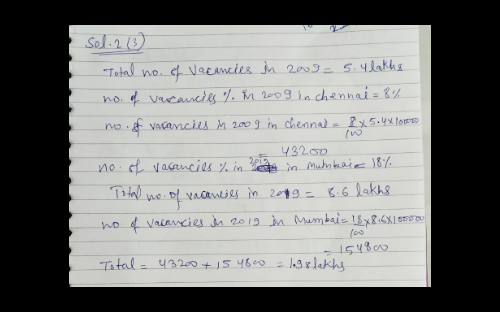 Sol.2(3)
Total no. of vacancies in 2009 = 5.4 lakhs
no. of varcancies % in 2009 in chennai = 8%
no. of vacancies in 2009 in chennai = 8/100 x 5.4 x 100000
= 43200
no. of vacancies % in 2019 in Mumbai = 18%
Total no. of vacancies in 2019 = 8.6 lakhs
no of vacancies in 2019 in Mumbai = 18/100 x 8.6 x 100000
= 154800
Total = 43200 + 154800 = 1.98 lakhs